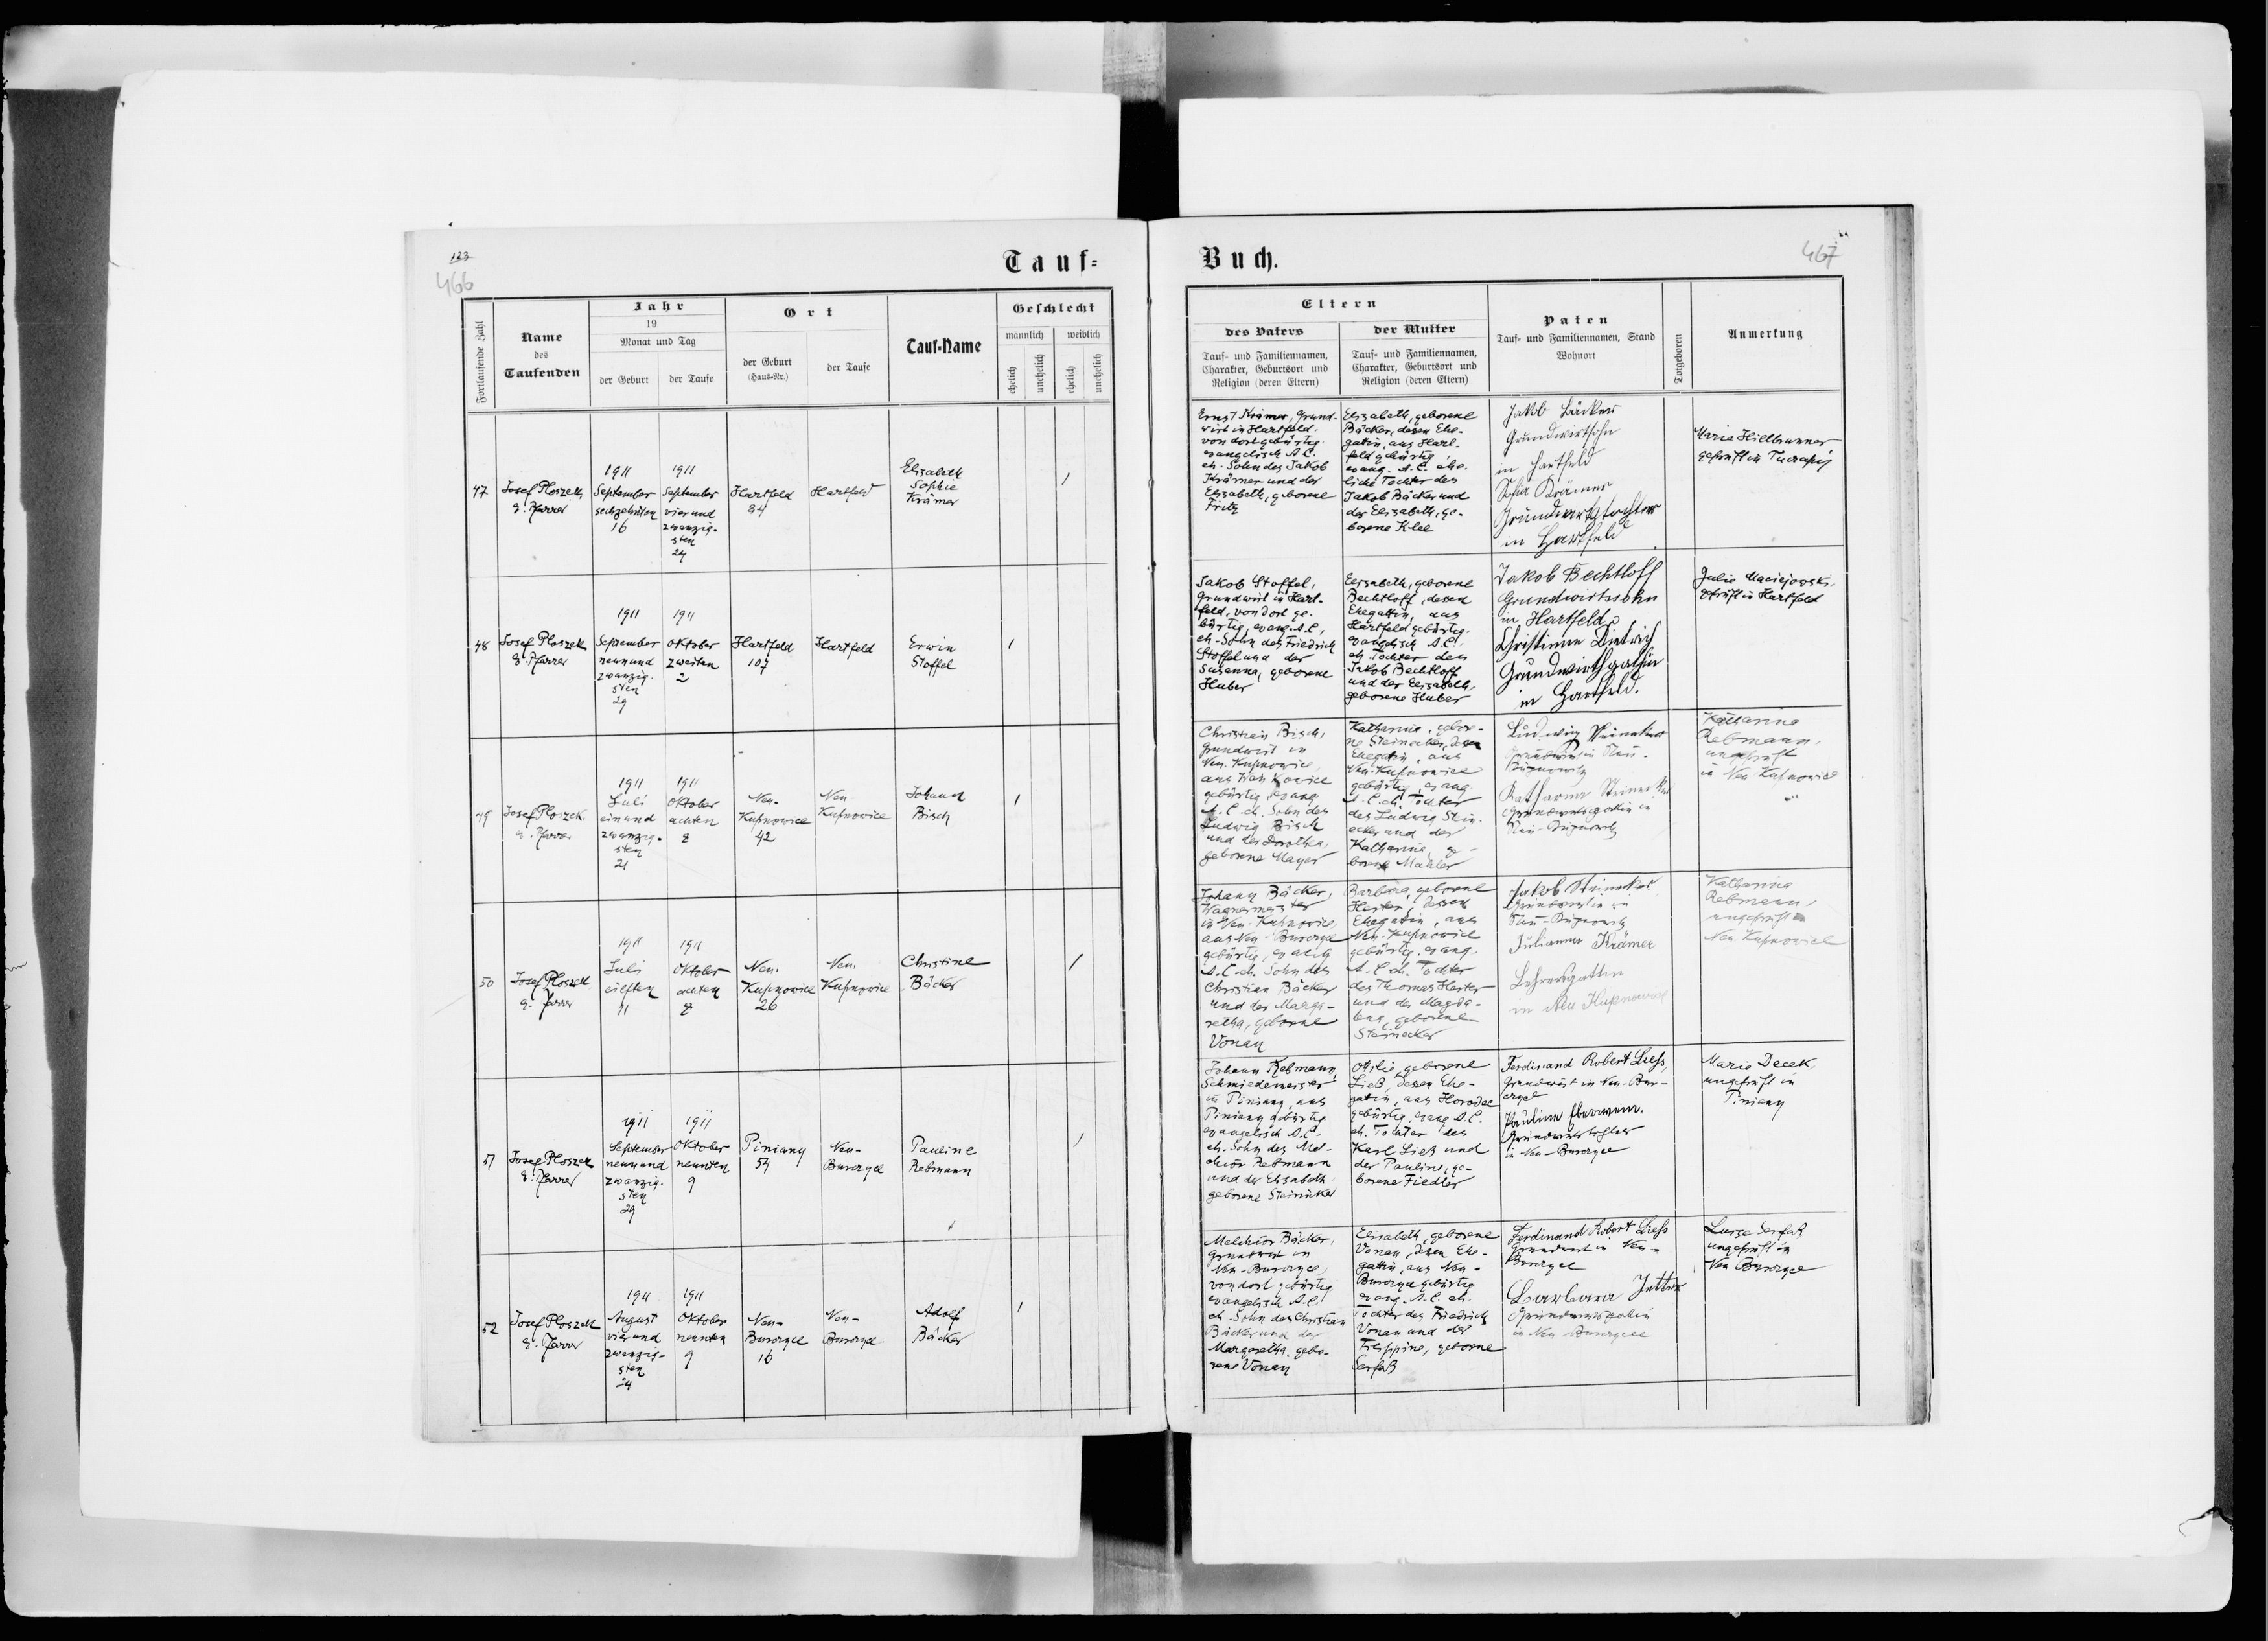 123
466
Tauf=
Fortlaufende Zahl
Name
des
Taufenden
Jahr
19
Monat und Tag
der Geburt
der Taufe
Ort
der Geburt
(Haus=Nr.)
der Taufe
Tauf=Name
Geschlecht
männlich
weiblich
ehelich
unehelich
ehelich
unehelich
47
Josef Ploszek
e. Pfarrer
1911
September
sechzehnten
16
1911
September
vier und
zwanzig-
sten
24
Hartfeld
84
Hartfeld
Elisabeth
Sophie
Krämer
48
Josef Ploszek
e. Pfarrer
1911
September
neunund
zwanzig-
sten
29
1911
Oktober
zweiten
2
Hartfeld
107
Hartfeld
Erwin
Stoffel
49
Josef Ploszek
e. Pfarrer
1911
Juli
einund
zwanzig-
sten
21
1911
Oktober
achten
8
Neu-
Kupnowice
42
Neu-
Kupnowice
Johann
Bisch
50
Josef Ploszek
e. Pfarrer
1911
Juli
eilften
11
1911
Oktober
achten
8
Neu-
Kupnowice
26
Neu-
Kupnowice
Christine
Bäcker
51
Josef Ploszek
e. Pfarrer
1911
September
neunund
zwanzig-
sten
29
1911
Oktober
neunten
9
Piniany
54
Neu-
Burczyce
Pauline
Rebmann
52
Josef Ploszek
e. Pfarrer
1911
August
vierund
zwanzig-
sten
24
1911
Oktober
neunten
9
Neu-
Burczyce
16
Neu-
Burczyce
Adolf
Bäcker
Buch.
467
Eltern
des Vaters
Tauf= und Familiennamen,
Charakter, Geburtsort und
Religion (deren Eltern)
der Mutter
Tauf= und Familiennamen,
Charakter, Geburtsort und
Religion (deren Eltern)
Paten
Tauf= und Familiennamen, Stand
Wohnort
Totgeboren
Anmerkung
Ernst Krämer, Grund-
wirt in Hartfeld,
von dort gebürtig.
evangelisch A.C.
eh. Sohn des Jakob
Krämer und der
Elisabeth, geborene
Fritz
Elisabeth, geborene
Bäcker, dessen Ehe-
gatin, aus Hart-
feld gebürtig,
evang. A.C. ehe-
liche Tochter des
Jakob Bäcker und
der Elisabeth, ge-
borene Klee
Jakob Bäcker
Grundwirtsohn
in Hartfeld
Sofia Krämer
Grundwirtstochter
in Hartfeld
Marie Hillbrunner
geprüft in Tuczapy
Jakob Stoffel,
Grundwirt in Hart-
feld, von dort ge-
bürtig, evang. A.C.,
eh. Sohn des Friedrich
Stoffel und der
Susanna, geborene
Huber
Elisabeth, geborene
Bechtloff, dessen
Ehegattin, aus
Hartfeld gebürtig.
evangelisch A.C.
eh. Tochter des
Jakob Bechtloff
und der Elisabeth,
geborene Huber
Jakob Bechtloff
Grundwirtssohn
in Hartfeld
Christinne Dietrich
Grundwirthgattin
in Hartfeld.
Julie Maciejowski
geprüft in Hartfeld
Christian Bisch,
Grundwirt in
Neu-Kupnowice,
gebürtig, evang
A.C. eh. Sohn des
Ludwig Bisch
und der Dorothea,
geborene Mayer
Katharina, gebore-
ne Steinecker, dessen
Ehegatin, aus
Neu-Kupnowice
gebürtig, evang.
A.C. eh. Tochter
des Ludwig Stein-
ecker und der
Katharina, ge-
borene Mahler
Ludwig
Katharina
Katharina
Rebmann,
ungeprüft
in Neu Kupnowice
Johann Bäcker,
Wagnermeister
in Neu-Kupnowice,
aus Neu-Burczyce
gebürtig, evang
A.C. eh. Sohn des
Christian Bäcker
und der Marga-
retha, geborene
Vonau
Barbara, geborene
Hester, dessen
Ehegatin, aus
Neu-Kupnowice
gebürtig, evang.
A.C. eh. Tochter
des Thomas Hester
und der Magda-
lena, geborene
Steinecker
Jakob Steinecker
Julianna Krämer
Lehrersgattin
in Neu Kupnowice
Katharina
Rebmann,
ungeprüft in
Neu Kupnowice
Johann Rebmann,
Schmiedemeister
in Piniany, aus
Piniany gebürtig
evangelisch A.C.
eh. Sohn des Mel-
chior Rebmann
und der Elisabeth,
geborene Steinecker
Ottilie, geborene
Ließ, dessen Ehe-
gatin, aus Horodec
gebürtig, evang A.C.
eh. Tochter des
Karl Ließ und
der Pauline, ge-
borene Fiedler
Ferdinand Robert Liess,
Grundwirt in Neu-Bur-
czyce
Paulina
Grundwirtstochter
in Neu-Burczyce
Marie Decek,
ungeprüft in
Piniany
Melchior Bäcker,
Grundwirt in
Neu-Burczyce,
von dort gebürtig
evangelisch A.C.
eh. Sohn des Christian
Bäcker und der
Margaretha, gebo-
rene Vonau
Elisabeth, geborene
Vonau, dessen Ehe-
gattin, aus Neu-
Burczyce gebürtig
evang. A.C. eh.
Tochter des Friedrich
Vonau und der
Filippine, geborene
Serfaß
Ferdinand Robert Liess
Grundwirt in Neu-
Burczyce
Barbara
in Neu Burczyce
Luise Serfaß
ungeprüft in
Neu Burczyce